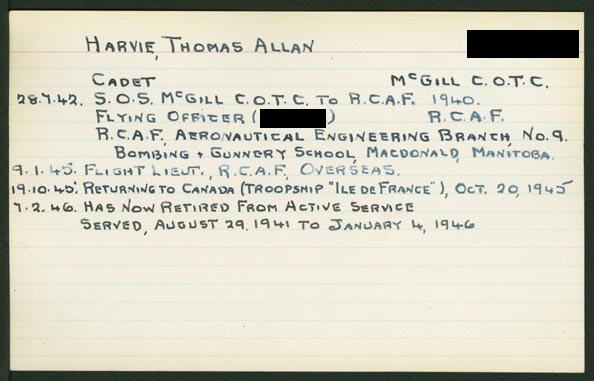 HARVIE, THOMAS ALLAN
CADET McGILL C.O.T.C.
28.7.42. S.O.S. McGILL C.O.T.C. TO R.C.A.F. 1940.
FLYING OFFICER ( ) R.C.A.F.
R.C.A.F. AERONAUTICAL ENGINEERING BRANCH, No. 9.
BOMBING + GUNNERY SCHOOL, MACDONALD, MANITOBA.
9.1.45. FLIGHT LIEUT., R.C.A.F. OVERSEAS.
19.10.45. RETURNING TO CANADA (TROOPSHIP "ILE DE FRANCE"), OCT. 20, 1945
7.2.46. HAS NOW RETIRED FROM ACTIVE SERVICE
SERVED, AUGUST 29, 1941 TO JANUARY 4, 1946